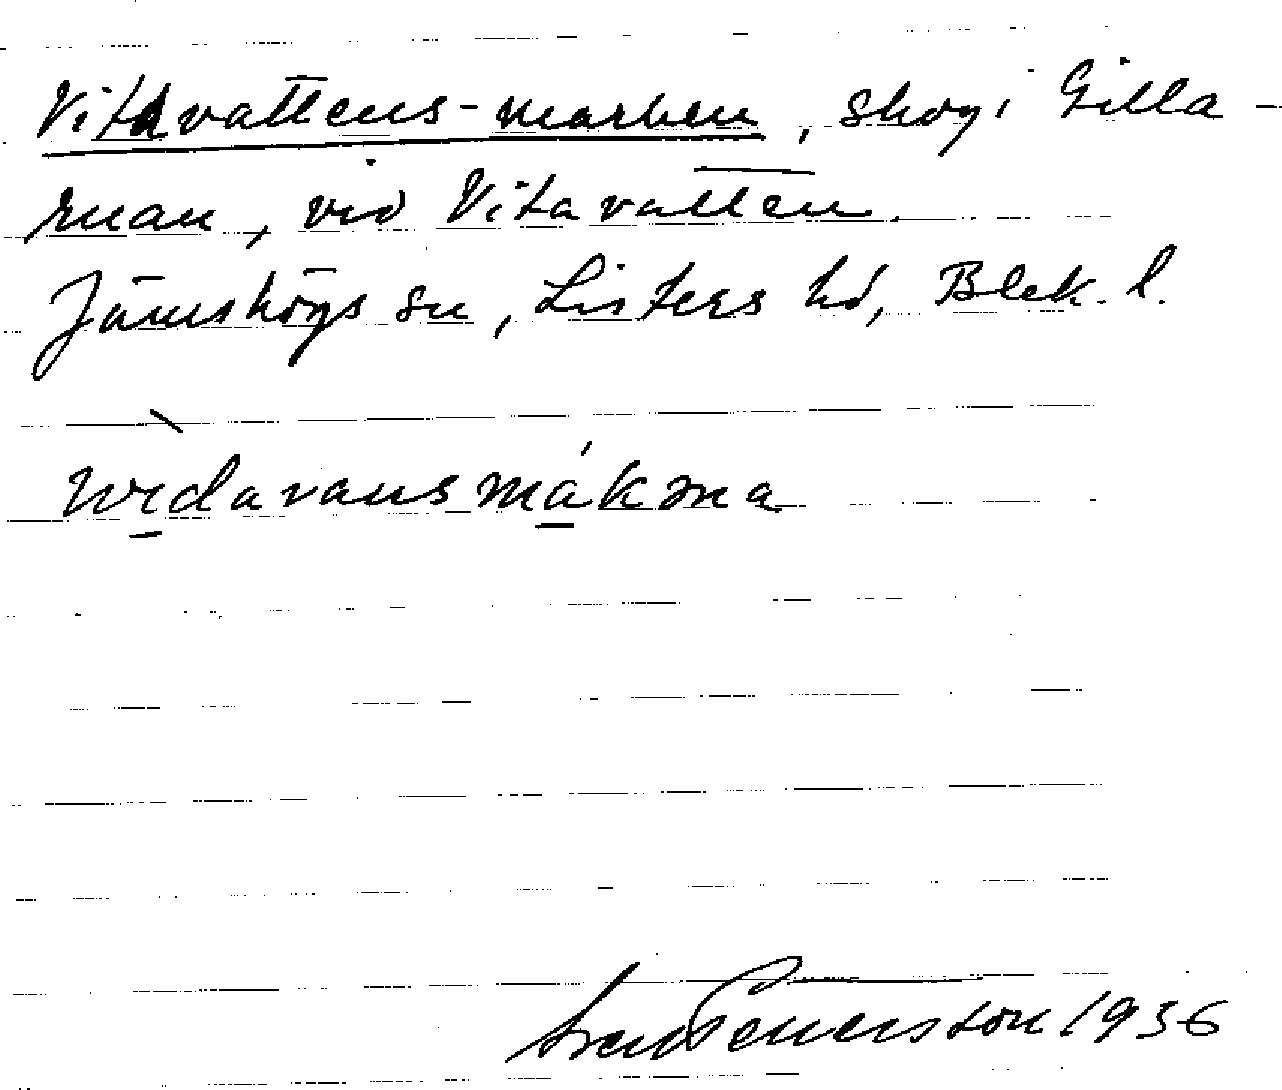 Vitavattens-marken, skog i Gilla-
ruan, vid Vitavatten.
Jämshögs sn, Listers hd, Blek. l.
wìdavansmákəna
Pettersson 1936